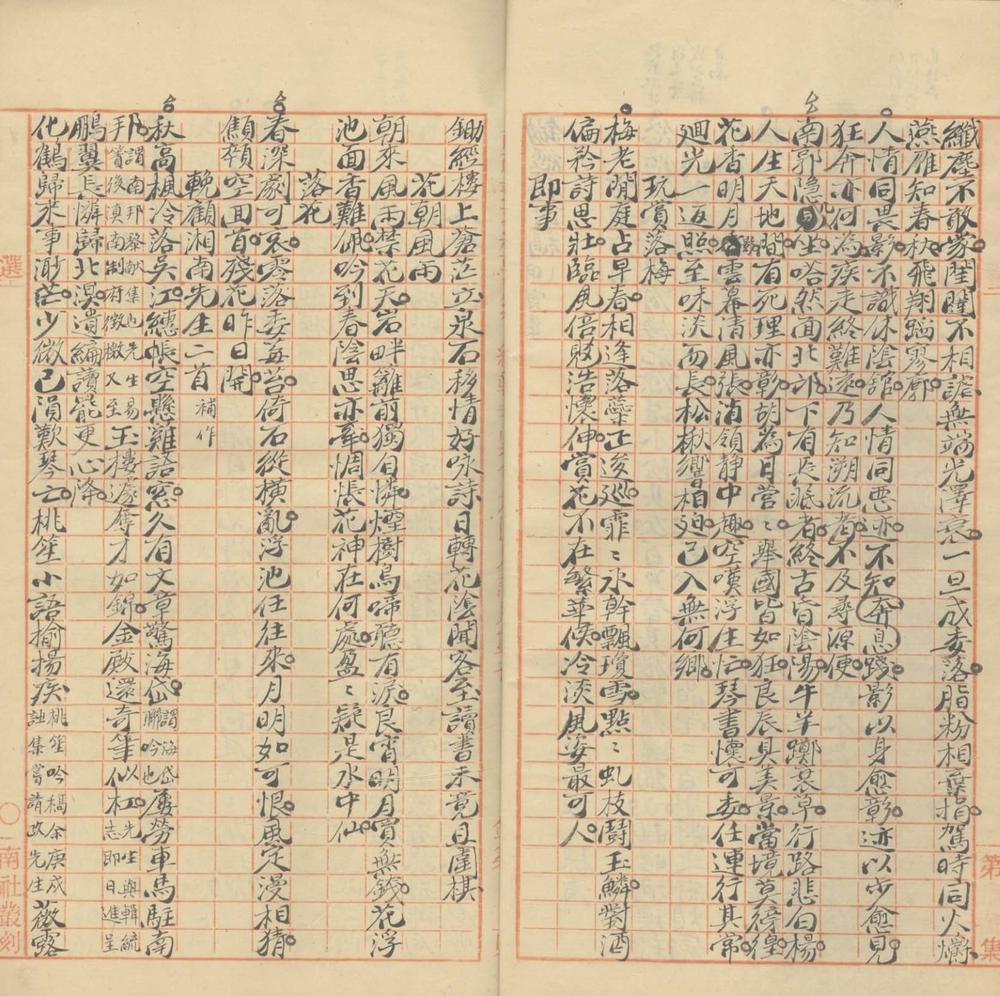 纖塵不敢蒙閨闥不相諠無端光澤衰一旦成委落脂粉相棄捐駕時同火爝
燕雁知春秋飛翔蹈寥廓
人情同畏影不識休陰舘人情同惡亦不知奔息蹤影以身愈彰迹以少愈見
狂奔亦何為疾走終難遠乃知溯流者不及尋源便
南郭隐几坐嗒然面北邙下有長瘧者終古皆陰湯牛羊躑哀草行路悲白楊
人生天地間有死理亦彰胡為日營〻舉國皆如狂良辰具美景當境莫徬徨
花香明月路雲幕清風張消領靜中趣空嘆浮生忙琴書懷可委任運行其常
廻光一返照至味淡而長松楸響相廹已入無何鄉
玩賞落梅
梅老閒庭占早春相逢落蘂正逡巡霏〻氷幹飄瓊雪點〻虬枝鬪玉鱗對酒
偏矜詩思壯臨風倍敗浩懷伸賞花不在繁華候冷淡風姿最可人
即事
鋤經樓上蒼茫立泉石移情好咏詩日轉花陰閒客至讀書未竟且圍棋
花朝風雨
朝來風雨禁花天岩畔籬前獨自憐煙樹鳥啼聽有淚良宵明月買無錢花浮
池面香難佩吟到春陰思亦牽惆悵花神在何處盈〻疑是水中仙
落花
春深劇可哀零落委莓苔倚石從橫亂浮池任往來月明如可恨風定漫相猜
顦顇空回首殘花昨日開
輓顧湘南先生二首 補作
秋高楓冷落吳江繐帳空懸難語窓久有文章驚海岱謂海岱聯吟也屢勞車馬駐南
邦謂南邦黎献集也先生易簀後滇南制府徵檄又至玉樓遽奪才如錦金殿還奇筆似杠先生與輯統志即日進呈
鵬翼長隣歸北溟遺編讀罷更心降
化鶴歸來事渺茫少微已隕歎琴亡桃笙小語揄揚疾桃笙吟稿余庚戌詶集嘗請政先生薇露
選
第
集
南社叢刻